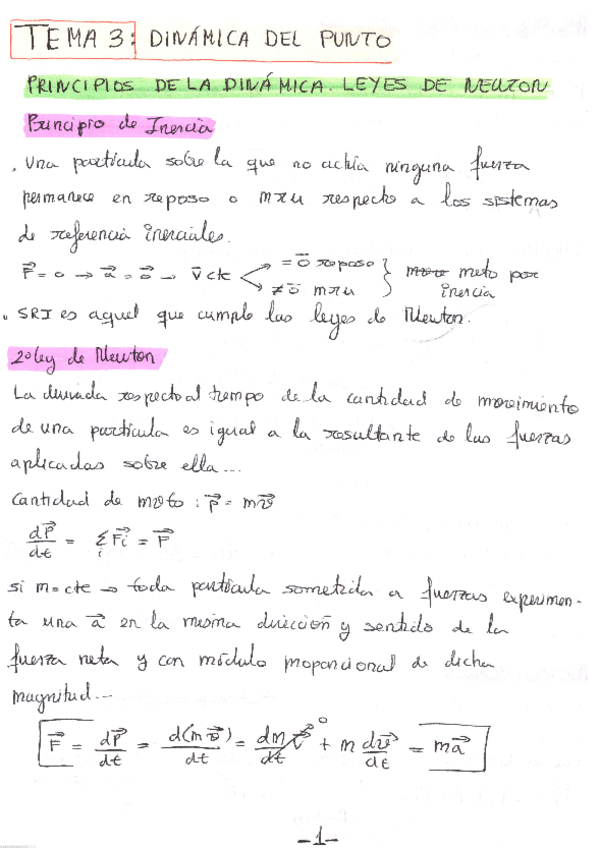 TEMA 3: DINÁMICA DEL PUNTO
PRINCIPIOS DE LA DINÁMICA. LEYES DE NEWTON
Principio de Inercia
. Una partícula sobre la que no actúa ninguna fuerza
permanece en reposo o mru respecto a los sistemas
de referencia inerciales.
F⃗ = 0 → a⃗ = 0⃗ → v⃗ cte < = 0⃗ reposo } mvto por
≠ 0⃗ mru } inercia
. SRI es aquel que cumple las leyes de Newton.
2º ley de Newton
La derivada respecto al tiempo de la cantidad de movimiento
de una partícula es igual a la resultante de las fuerzas
aplicadas sobre ella...
Cantidad de mvto : p⃗ = mv⃗
dp⃗/dt = Σᵢ F⃗i = F⃗
si m=cte → toda partícula sometida a fuerzas experimen-
ta una a⃗ en la misma dirección y sentido de la
fuerza neta y con módulo proporcional de dicha
magnitud...
F⃗ = dp⃗/dt = d(mv⃗)/dt = dm/dt v⃗ 0 + m dv⃗/dt = ma⃗
-1-